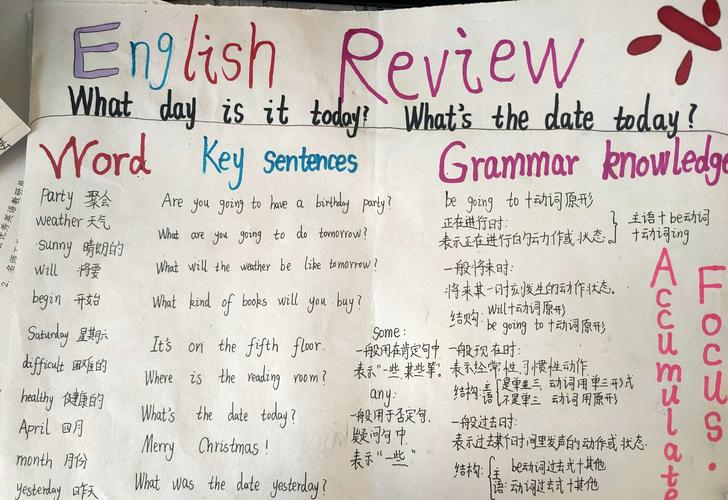 English Review
What day is it today? What's the date today?
Word
party 聚会
weather 天气
sunny 晴朗的
will 将要
begin 开始
Saturday 星期六
difficult 困难的
healthy 健康的
April 四月
month 月份
yesterday 昨天
Key sentences
Are you going to have a birthday party?
What are you going to do tomorrow?
What will the weather be like tomorrow?
What kind of books will you buy?
It's on the fifth floor.
Where is the reading room?
What's the date today?
Merry Christmas!
What was the date yesterday?
some:
一般用在肯定句中
表示“一些,某些等”.
any:
一般用于否定句.
疑问句中.
表示“一些”
Grammar knowledge
be going to +动词原形
正在进行时:
表示正在进行的动作或状态.
主语+be动词
+动词ing
一般将来时:
将来某一时刻发生的动作状态。
结构: will+动词原形
be going to +动词原形
一般现在时:
表示经常性,习惯性动作
结构:主语 是单三 动词用单三形式
不是单三 动词用原形
一般过去时:
表示过去某个时间里发生的动作或状态.
结构: be动词过去式+其他
主语: 动词过去式+其他
Accumulate
Focus.